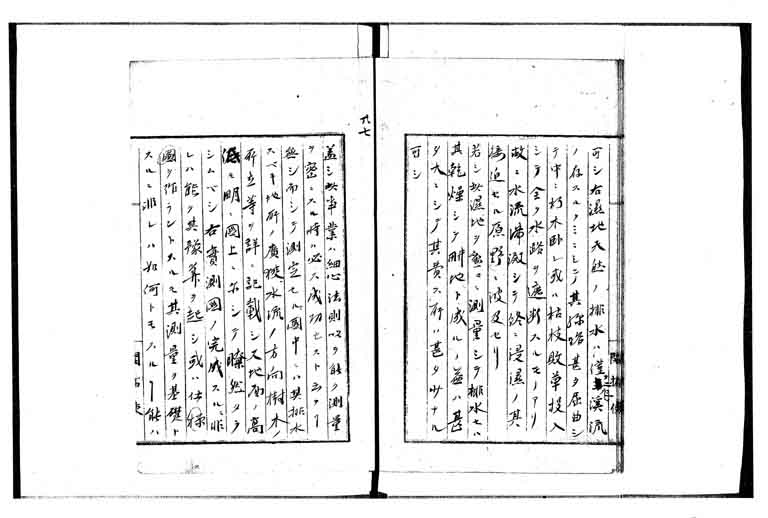 可シ右濕地天然ノ排水ハ僅ニ溪流
ノ存スルノミニシテ其線路甚タ屈曲シ
テ中ニ朽木卧シ或ハ枯枝敗草投入
シテ全ク水路ヲ遮断スルモノアリ
故ニ水流満激シテ終ニ浸濕ノ其
接近セル原野ニ波及セリ
若シ此濕地ヲ熟々測量シテ排水セハ
其乾燥シテ耕地ト成ルノ益ハ甚
タ大ニシテ其費ス所ハ甚タ少ナル
可シ
九七
蓋シ此事業ハ細心法則以ヲ能ク測量
ヲ密ニスル時ハ必ス成功セスト云フ
無シ而シテ測定セル圖中ニハ其排水
スベキ地所ノ廣狹水流ノ方向樹木ノ
所在等ヲ詳ニ記載シ又地面ノ高
低モ明ニ圖上ニ示シテ瞭然タラ
シムベシ右實測圖ノ完成スルニ非
レハ能ク其豫算ヲ起シ或ハ仕様
圖ヲ作ラントスルモ其測量ヲ基礎ト
スルニ非レハ如何トモスルヿ能ハ
開拓使